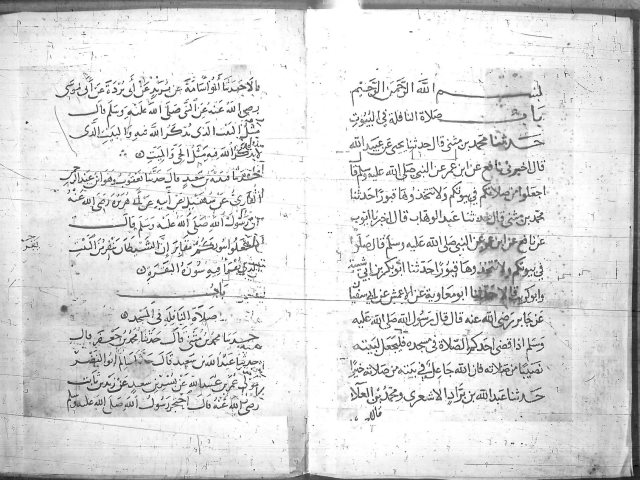 بسم الله الرحمن الرحيم
باب صلاة النافلة في البيوت
حدثنا محمد بن مثنى قال حدثنا يحيى عن عبيد الله
قال اخبرني نافع عن ابن عمر عن النبي صلى الله عليه وسلم قا
اجعلوا من صلاتكم في بيوتكم ولا تتخذوها قبورا حدثنا
محمد بن مثنى قال حدثنا عبد الوهاب قال اخبرنا ايوب
عن نافع عن ابن عمر عن النبي صلى الله عليه وسلم قال صلوا
في بيوتكم ولا تتخذوها قبورا حدثنا ابو بكر بن ابي شيبة
وابو كريب قالا حدثنا ابو معاوية عن الاعمش عن ابي سفيان
عن جابر رضي الله عنه قال قال رسول الله صلى الله عليه
وسلم اذا قضى احدكم الصلاة في مسجده فليجعل لبيته
نصيبا من صلاته فان الله جاعل في بيته من صلاته خيرا
حدثنا عبد الله بن براد الاشعري ومحمد بن العلا
قالا
قالا حدثنا ابو اسامة عن بريد عن ابي بردة عن ابي موسى
رضي الله عنه عن النبي صلى الله عليه وسلم قال
مثل البيت الذي يذكر الله فيه والبيت الذي
لا يذكر الله فيه مثل الحي والميت
حدثنا قتيبة بن سعيد قال حدثنا يعقوب وهو ابن عبد الرحمن
القاري عن سهيل عن ابيه عن ابي هريرة رضي الله عنه
ان رسول الله صلى الله عليه وسلم قال
لا تجعلوا بيوتكم مقابر ان الشيطان ينفر من البيت
الذي تقرا فيه سورة البقرة
باب
صلاة النافلة في المسجد
حدثنا محمد بن مثنى قال حدثنا محمد بن جعفر قال
حدثنا عبد الله بن سعيد قال حدثنا سالم ابو النضر
مولى عمر بن عبيد الله عن بسر بن سعيد عن زيد بن ثابت
رضي الله عنه قال احتجر رسول الله صلى الله عليه وسلم